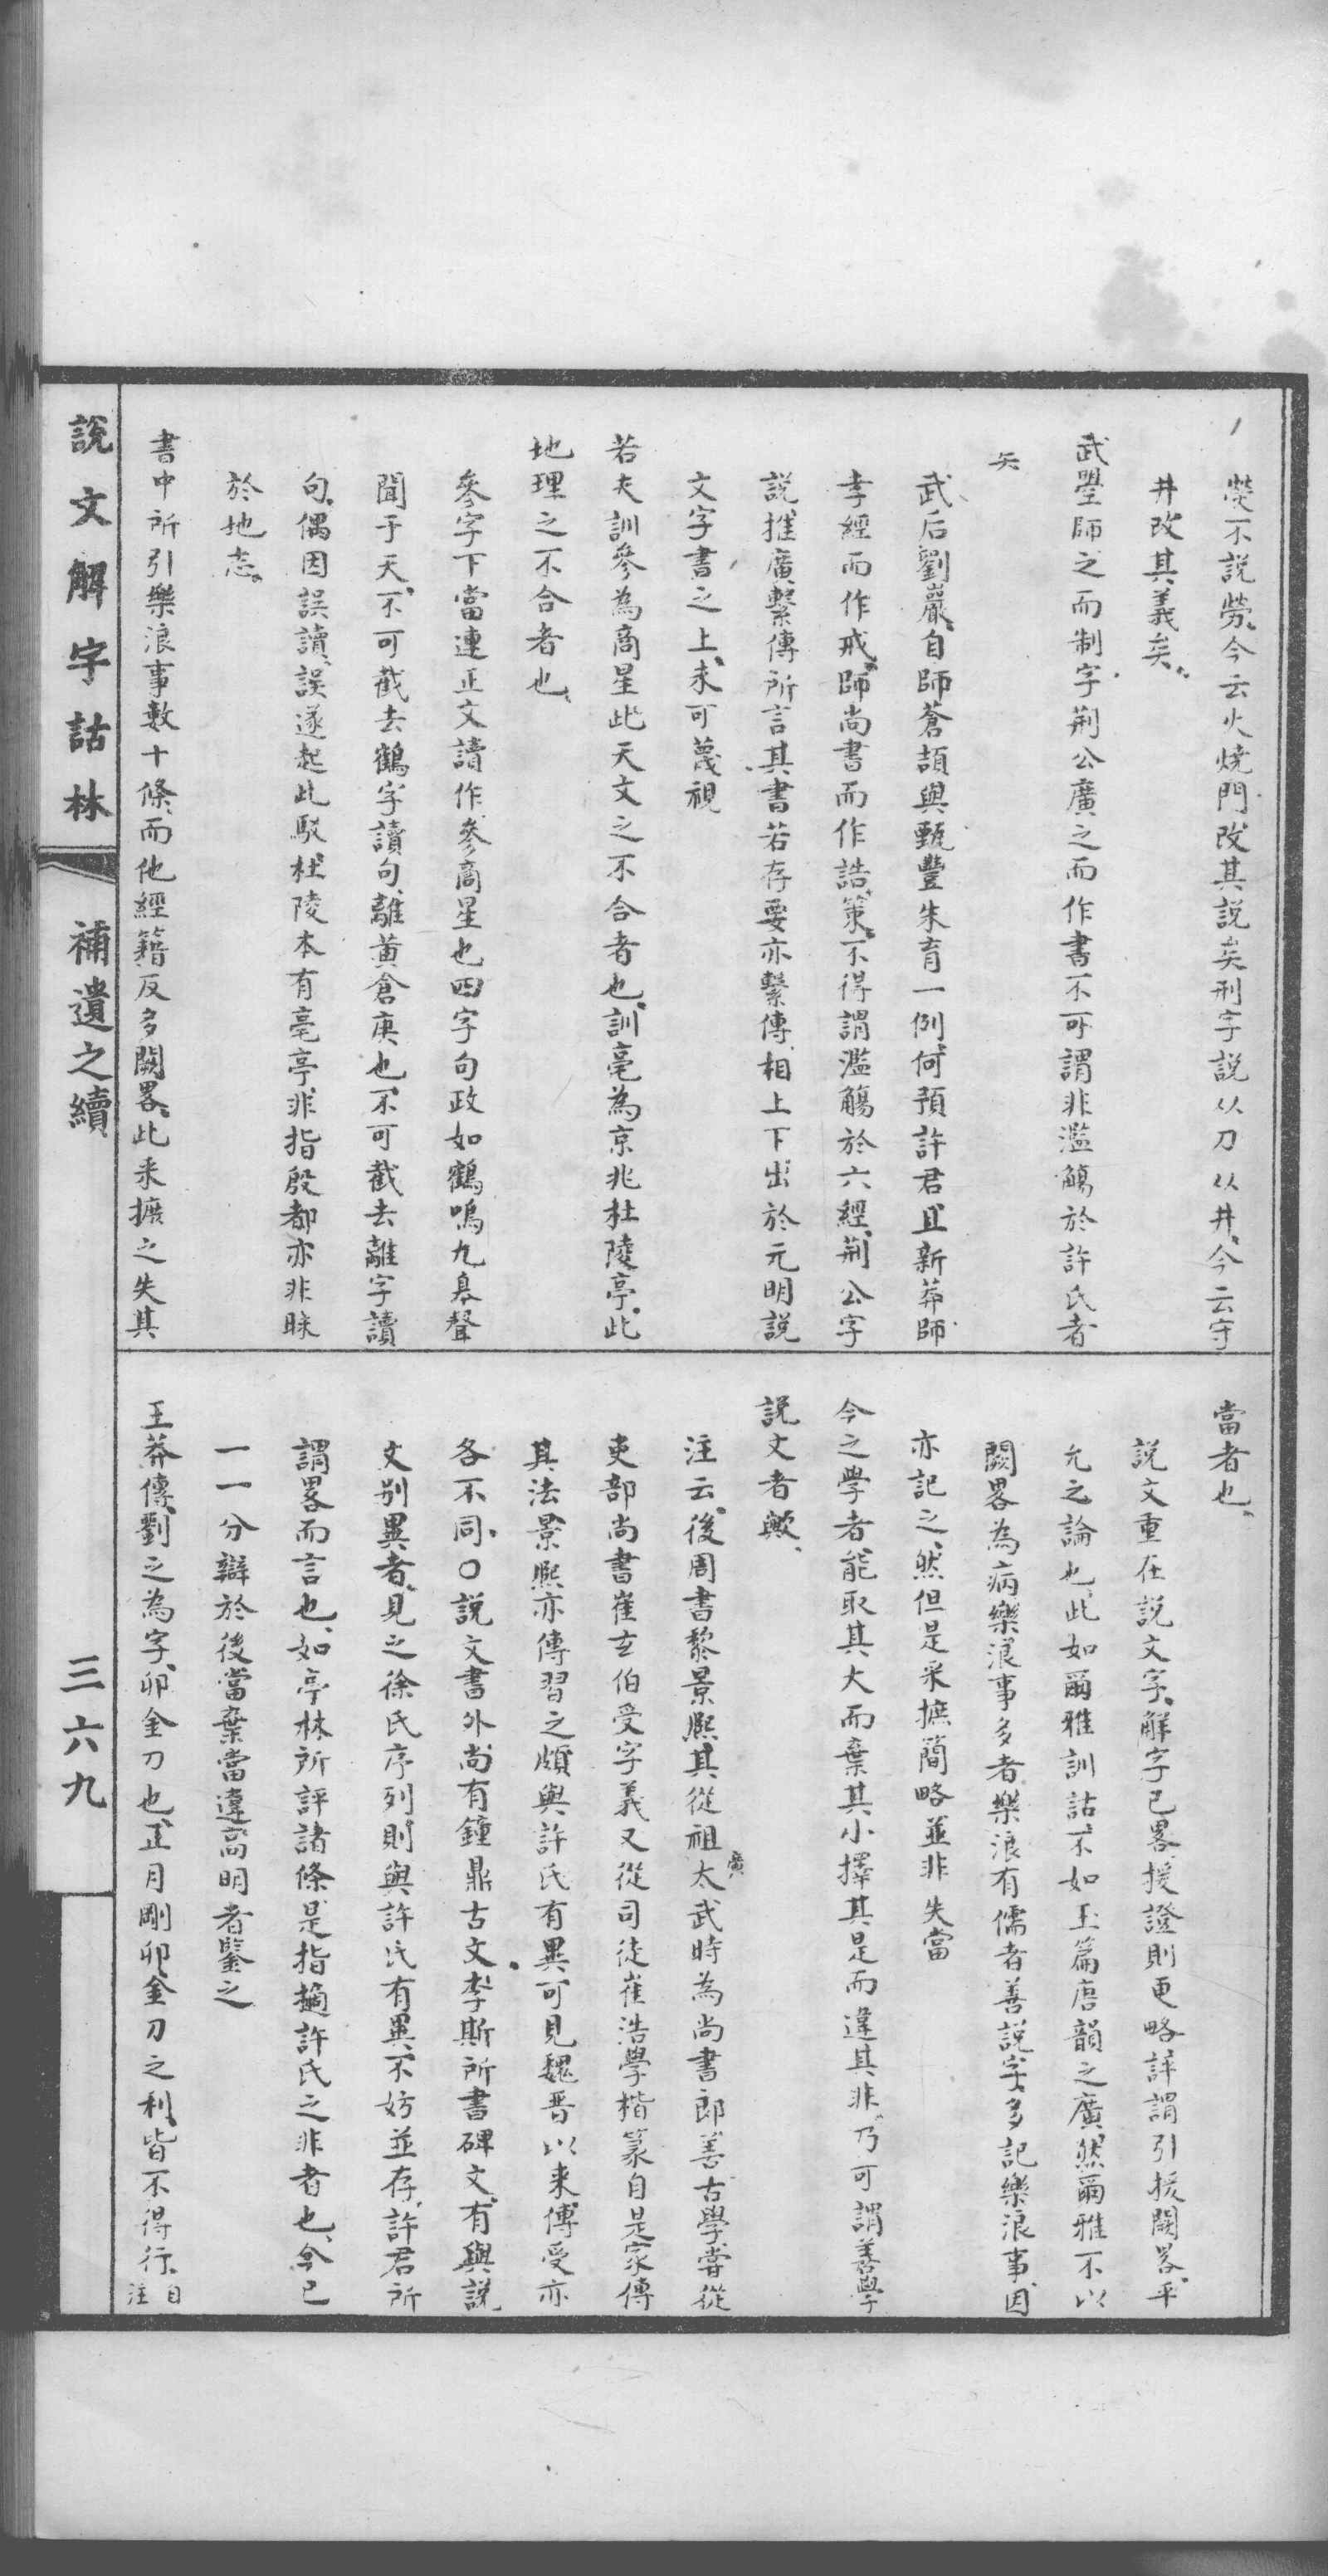 熒不説勞、今云火燒門、改其説矣、刑字説从刀从井、今云守
井、改其義矣、
武曌師之而制字、荆公廣之而作書、不可謂非濫觴於許氏者
矣
武后劉巖、自師蒼頡、與甄豐朱育一例、何預許君、且新莽師
孝經而作戒、師尚書而作誥策、不得謂濫觴於六經、荆公字
説、推廣繫傳所言、其書若存、要亦繫傳相上下、出於元明説
文字書之上、未可蔑視
若夫訓參為商星、此天文之不合者也、訓亳為京兆杜陵亭、此
地理之不合者也、
參字下當連正文讀作參商星也四字句、政如鶴鳴九皋聲
聞于天、不可截去鶴字讀句、離黄倉庚也、不可截去離字讀
句、偶因誤讀、誤遂起此駁、杜陵本有亳亭、非指殷都、亦非昧
於地志、
書中所引樂浪事數十條、而他經籍反多闕畧、此采摭之失其
當者也、
説文重在説文字、解字已畧、援證則更略、評謂引援闕畧、平
允之論也、此如爾雅訓詁、不如玉篇唐韻之廣、然爾雅不以
闕畧為病、樂浪事多者、樂浪有儒者善説字、多記樂浪事、因
亦記之、然但是采摭簡略、並非失當
今之學者能取其大而棄其小、擇其是而違其非、乃可謂善學
説文者歟、
注云、後周書黎景熙、其從祖廣太武時為尚書郎、善古學、嘗從
吏部尚書崔玄伯受字義、又從司徒崔浩學楷篆、自是家傳
其法、景熙亦傳習之、頗與許氏有異、可見魏晉以來、傳受亦
各不同、〇説文書外、尚有鐘鼎古文、李斯所書碑文、有與説
文别異者、見之徐氏序列、則與許氏有異、不妨並存、許君所
謂畧而言也、如亭林所評諸條、是指摘許氏之非者也、今已
一一分辯於後、當棄當違、高明者鑒之
王莽傳、劉之為字、卯金刀也、正月剛卯、金刀之利、皆不得行、自注
説文解字詁林 補遺之續 三六九